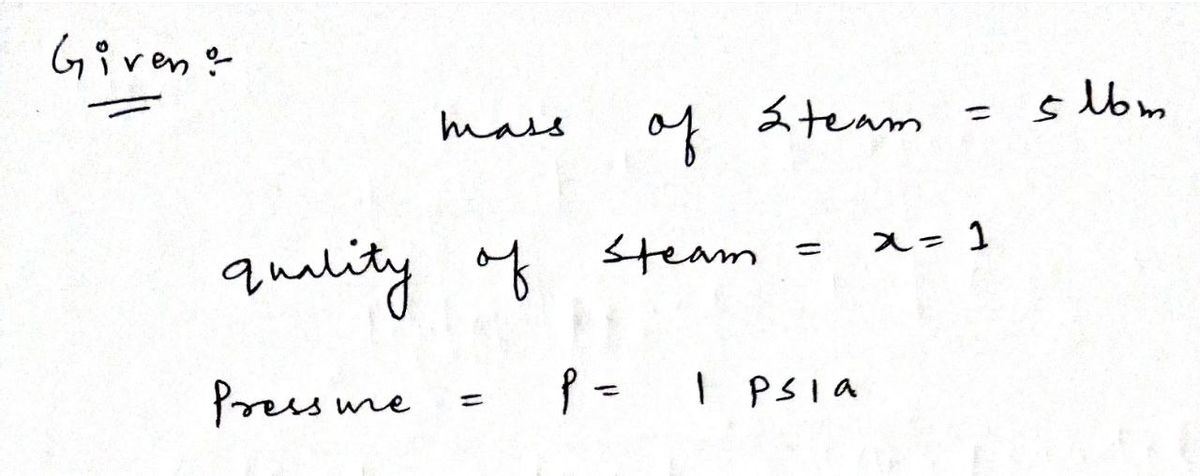 Given :-
mass of steam = 5 lbm
quality of steam = x = 1
Pressure = P = 1 psia